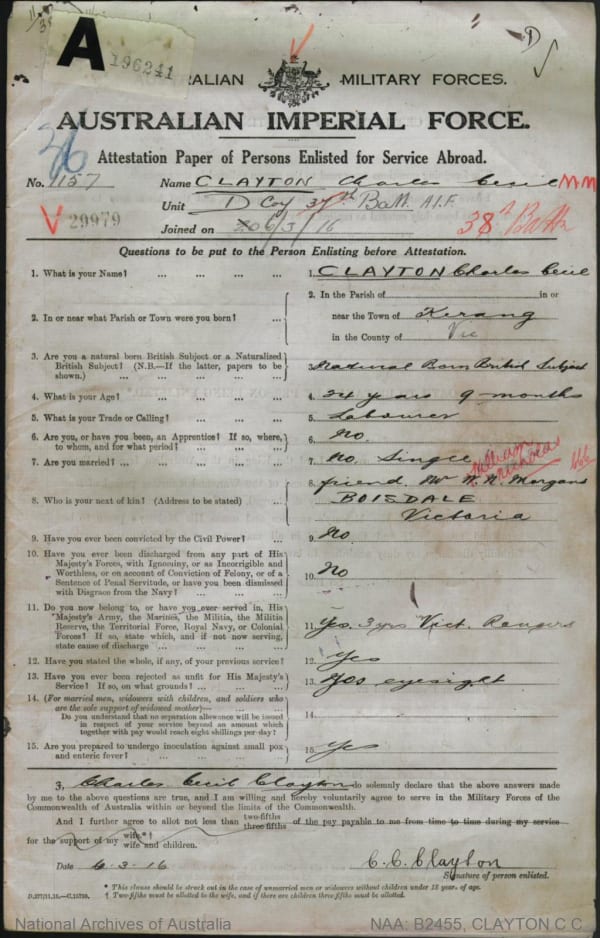 A 196241
AUSTRALIAN MILITARY FORCES.
AUSTRALIAN IMPERIAL FORCE.
36
Attestation Paper of Persons Enlisted for Service Abroad.
No. 1157 Name CLAYTON Charles Cecil MM
Unit D Coy 37th Batt. A.I.F.
V 29979 38th Battn
Joined on 6/3/16
Questions to be put to the Person Enlisting before Attestation.
1. What is your Name? ... ... ... ... 1. CLAYTON Charles Cecil
2. In or near what Parish or Town were you born? ... 2. In the Parish of in or
near the Town of Kerang
in the County of Vic
3. Are you a natural born British Subject or a Naturalized
British Subject? (N.B.—If the latter, papers to be
shown.) ... ... ... ... 3. Natural Born British Subject
4. What is your Age? ... ... ... ... 4. 24 years 9 months
5. What is your Trade or Calling? ... ... ... 5. Labourer
6. Are you, or have you been, an Apprentice? If so, where,
to whom, and for what period? ... ... ... 6. No
7. Are you married? ... ... ... ... 7. No. Single
William Nicholas
8. Who is your next of kin? (Address to be stated) ... 8. friend. Mr W. N. Morgans
BOISDALE
Victoria
9. Have you ever been convicted by the Civil Power? ... 9. No
10. Have you ever been discharged from any part of His
Majesty's Forces, with Ignominy, or as Incorrigible and
Worthless, or on account of Conviction of Felony, or of a
Sentence of Penal Servitude, or have you been dismissed
with Disgrace from the Navy? ... ... ... 10. No
11. Do you now belong to, or have you ever served in, His
Majesty's Army, the Marines, the Militia, the Militia
Reserve, the Territorial Force, Royal Navy, or Colonial
Forces? If so, state which, and if not now serving,
state cause of discharge ... ... ... 11. Yes, 3 yrs Vict. Rangers
12. Have you stated the whole, if any, of your previous service? 12. Yes
13. Have you ever been rejected as unfit for His Majesty's
Service? If so, on what grounds? ... ... ... 13. Yes eyesight
14. (For married men, widowers with children, and soldiers who
are the sole support of widowed mother)—
Do you understand that no separation allowance will be issued
in respect of your service beyond an amount which
together with pay would reach eight shillings per day? 14.
15. Are you prepared to undergo inoculation against small pox
and enteric fever? ... ... ... ... 15. Yes
I, Charles Cecil Clayton do solemnly declare that the above answers made
by me to the above questions are true, and I am willing and hereby voluntarily agree to serve in the Military Forces of the
Commonwealth of Australia within or beyond the limits of the Commonwealth.
And I further agree to allot not less than two-fifths three-fifths of the pay payable to me from time to time during my service
for the support of my wife*† wife and children.
Date 6-3-16 C. C. Clayton
Signature of person enlisted.
* This clause should be struck out in the case of unmarried men or widowers without children under 18 year. of age.
† Two-fifths must be allotted to the wife, and if there are children three-fifths must be allotted.
D.277/11.15.—C.15790.
National Archives of Australia NAA: B2455, CLAYTON C C